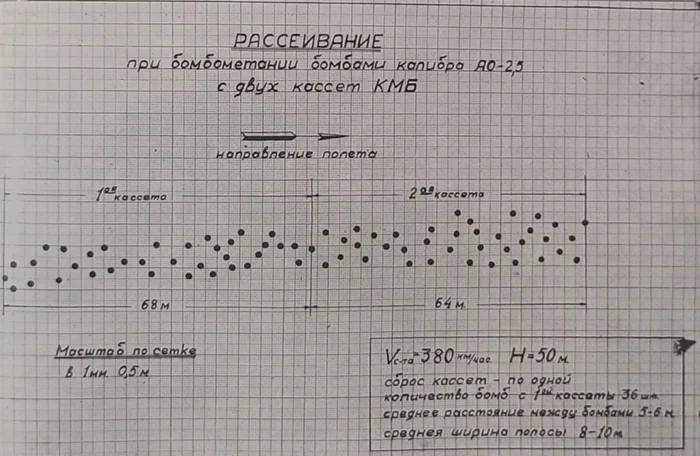 РАССЕИВАНИЕ
при бомбометании бомбами калибра АО-2,5
с двух кассет КМБ
направление полета
1ая кассета
2ая кассета
68 м
64 м.
Масштаб по сетке
в 1мм. 0,5 м
Vс-та=380 км/час. H=50 м.
сброс кассет - по одной
количество бомб с 1ой кассеты 36 шт.
среднее расстояние между бомбами 5-6 м.
средняя ширина полосы 8-10 м.